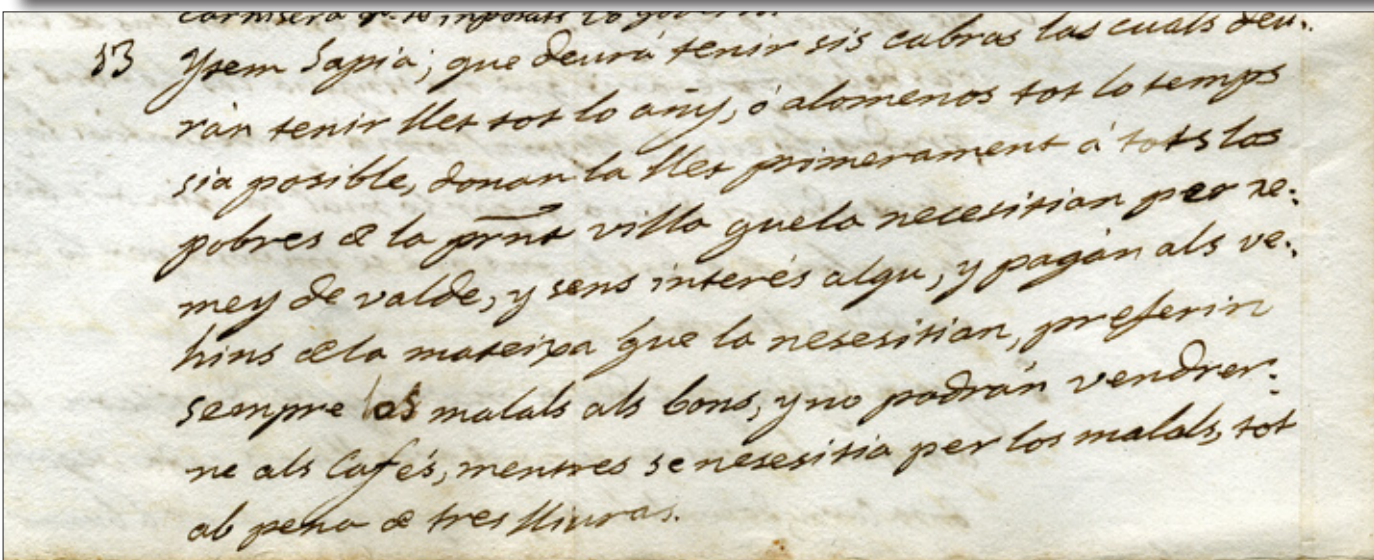 53 Ytem Sapia; que deurá tenir sis cabras las cuals deu:
rán tenir llet tot lo añy, ó alomenos tot lo temps
sia posible, donan la llet primerament á tots los
pobres de la prnt villa quela necesitian per re:
mey de valde, y sens interés algu, y pagán als ve:
hins dela mateixa que la nesesitian, preferin
sempre los malals als bons, y no podrán vendrer:
ne als Cafés, mentres se nesesitia per los malals, tot
ab pena de tres lliuras.